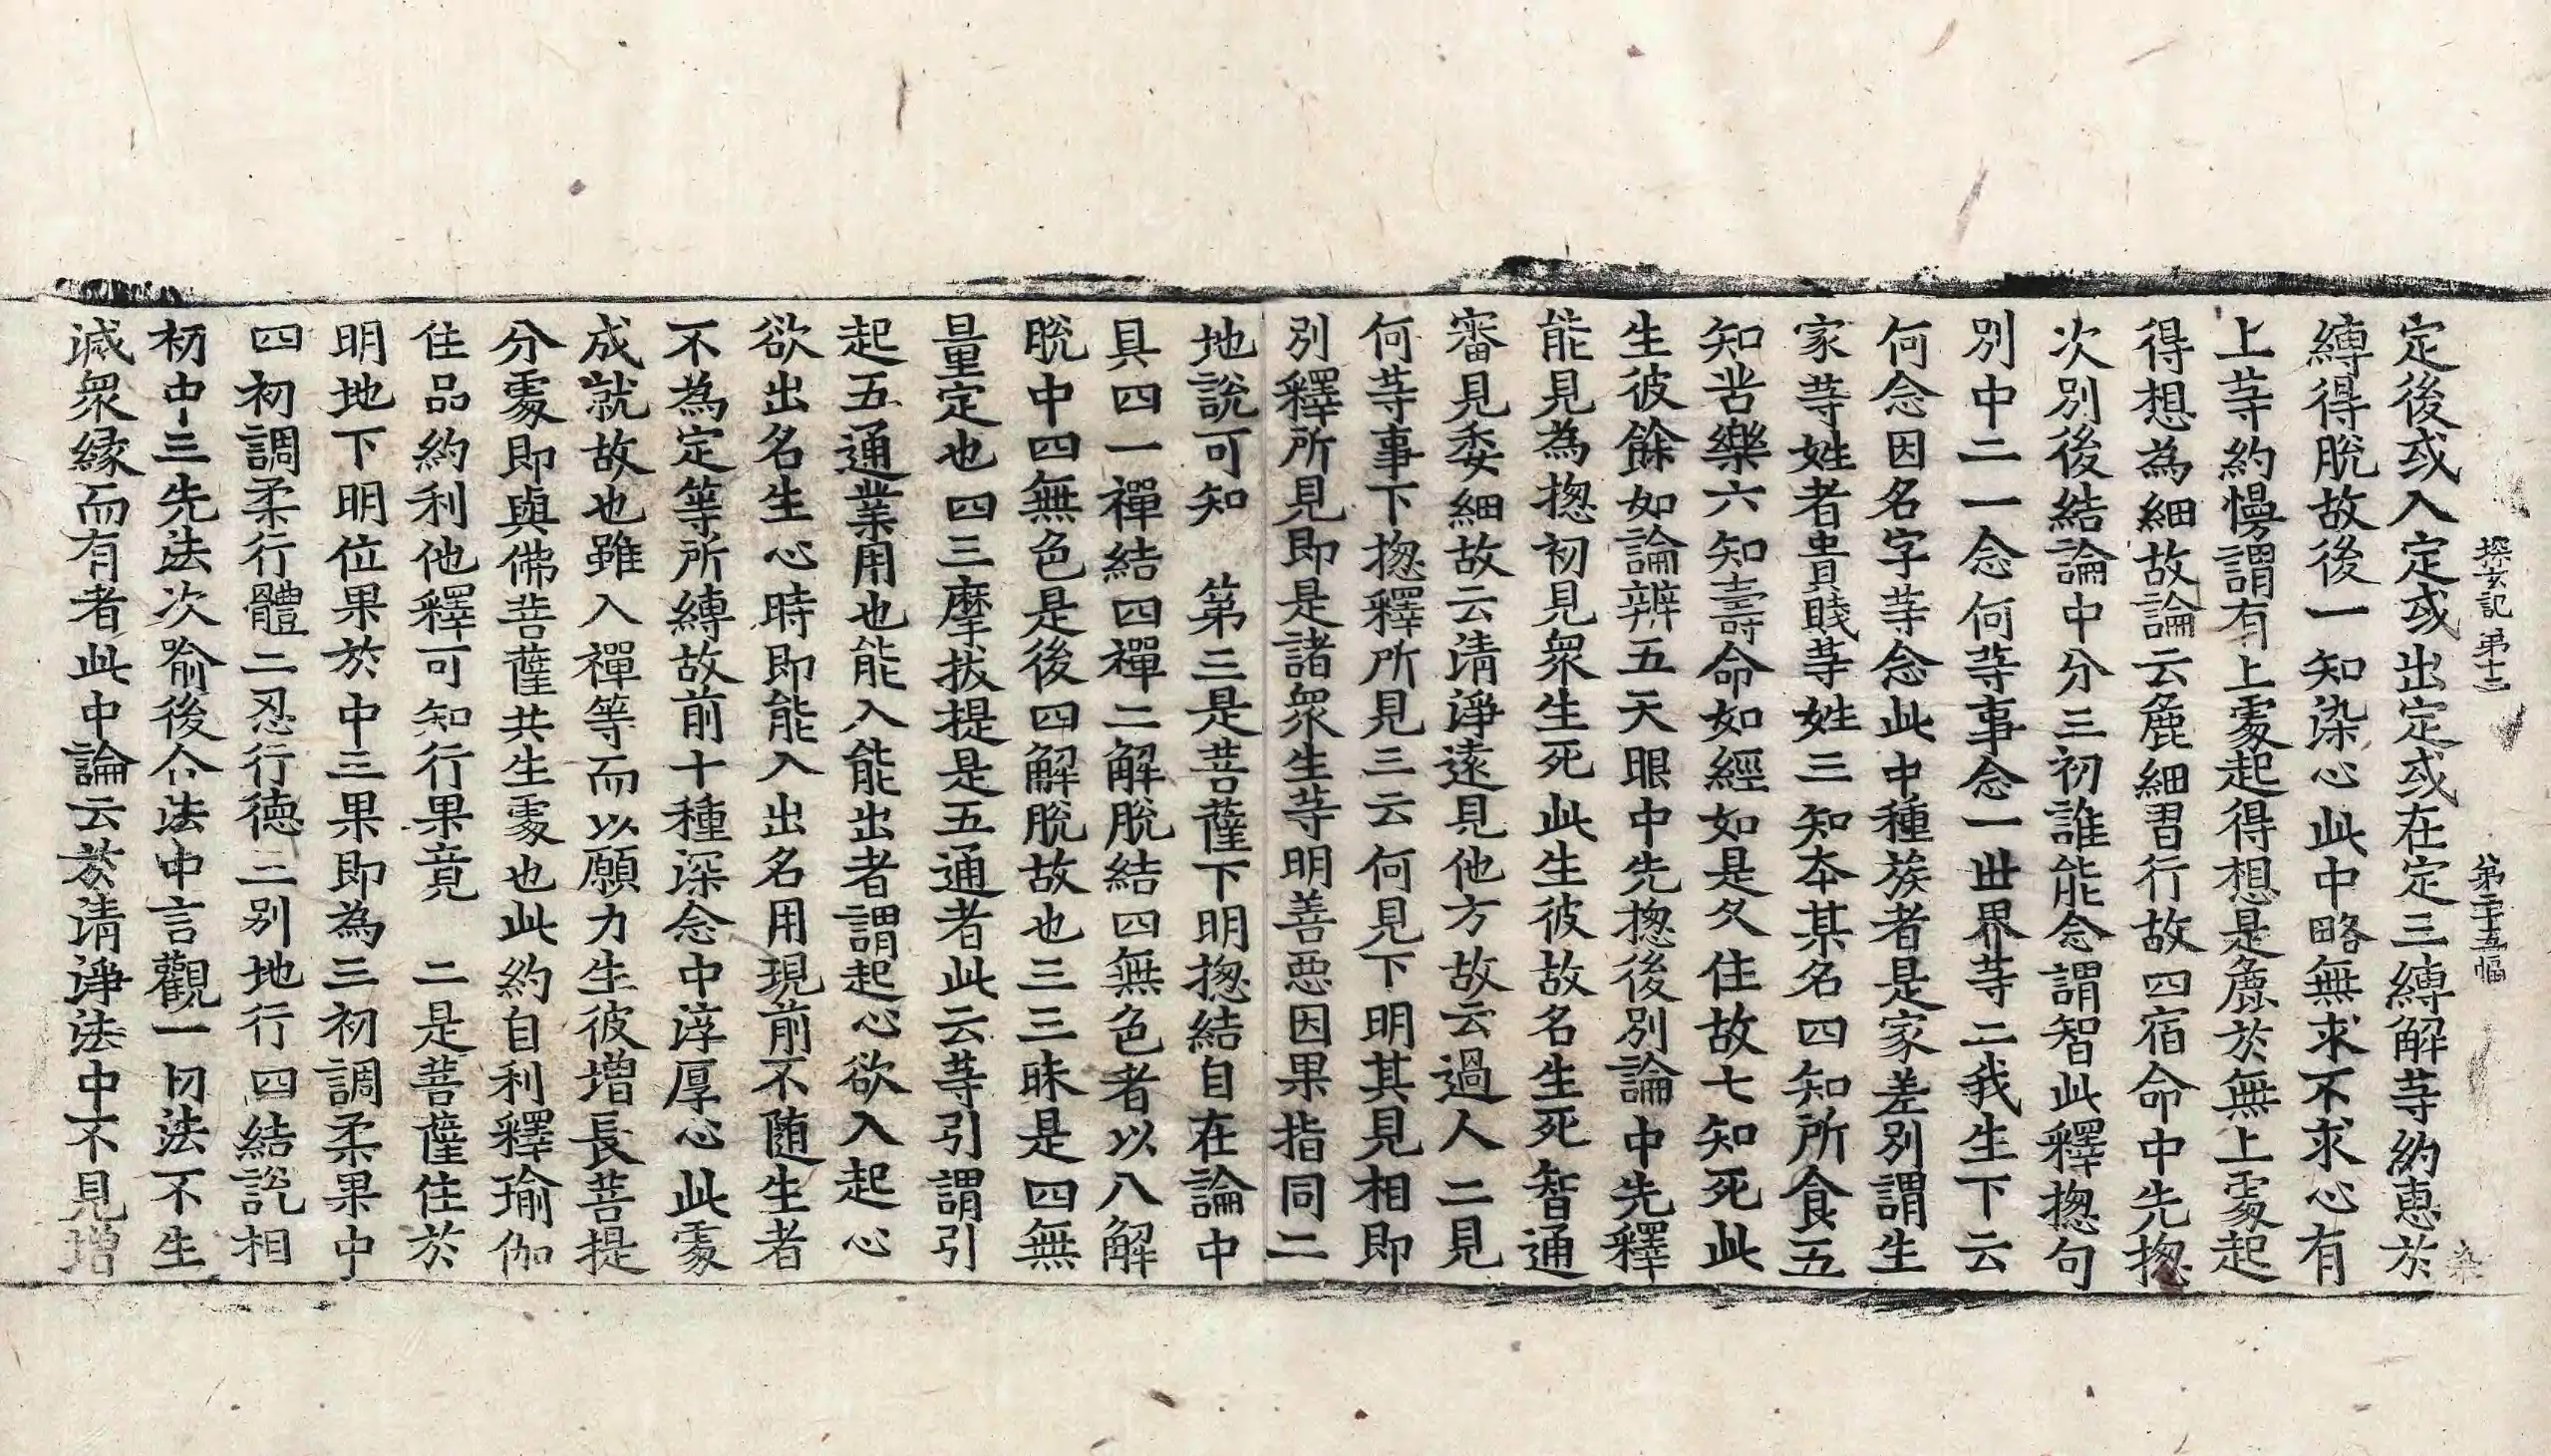 探玄記 第十二 第二十五幅 染
定後或入定或出定或在定三縛解䓁約恵於
縛得脫故後一知染心此中略無求不求心有
上䓁約慢謂有上䖏起得想是麁於無上䖏起
得想為細故論云麁細習行故四宿命中先揔
次別後結論中分三初誰能念謂智此釋揔句
別中二一念何䓁事念一世界䓁二我生下云
何念因名字䓁念此中種族者是家差別謂生
家䓁姓者貴賤䓁姓三知本某名四知所食五
知苦樂六知壽命如經如是久住故七知死此
生彼餘如論辨五天眼中先揔後別論中先釋
能見為揔初見衆生死此生彼故名生死智通
審見委細故云清淨遠見他方故云過人二見
何䓁事下揔釋所見三云何見下明其見相即
別釋所見即是諸衆生䓁明善惡因果指同二
地說可知　第三是菩薩下明揔結自在論中
具四一禪結四禪二解脫結四無色者以八解
脫中四無色是後四解脫故也三三昧是四無
量定也四三摩拔提是五通者此云䓁引謂引
起五通業用也能入能出者謂起心欲入起心
欲出名生心時即能入出名用現前不随生者
不為定等所縛故前十種深念中淳厚心此䖏
成就故也雖入禪等而以願力生彼增長菩提
分䖏即與佛菩薩共生䖏也此約自利釋瑜伽
住品約利他釋可知行果竟　二是菩薩住於
明地下明位果於中三果即為三初調柔果中
四初調柔行體二忍行德三別地行四結說相
初中三先法次喻後合法中言觀一切法不生
減衆緣而有者此中論云於清淨法中不見增